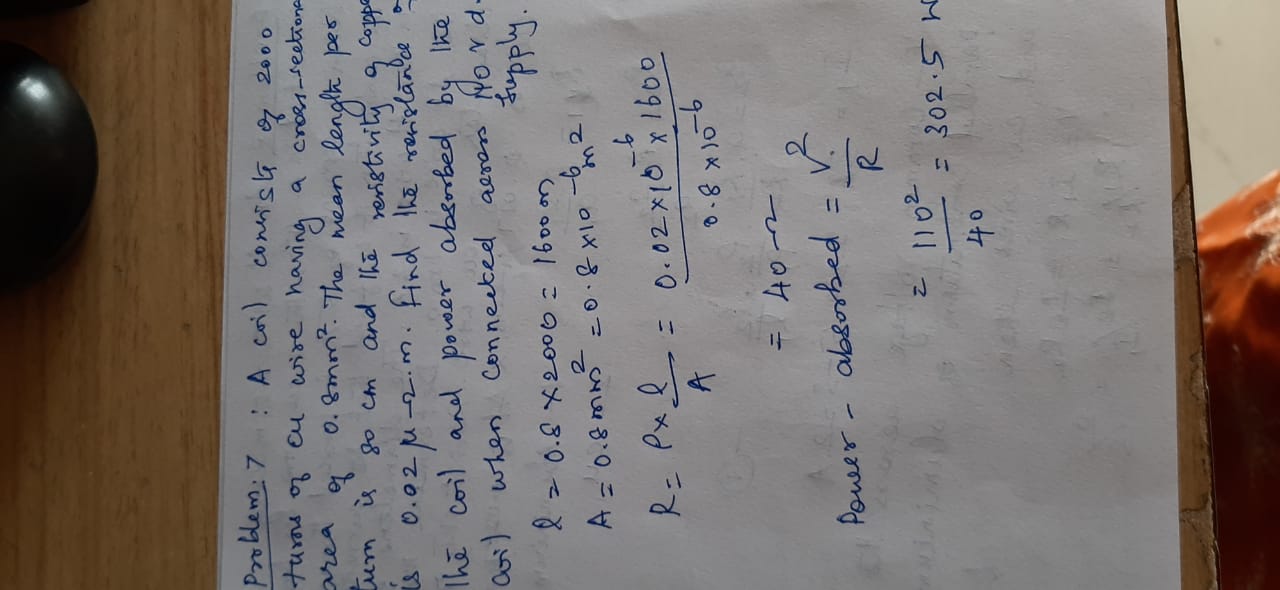 Problem. 7 : A coil consists of 2000
turns of cu wire having a cross-sectiona
area of 0.8mm². The mean length per
turn is 80 cm and the resistivity of coppe
is 0.02 μ-Ω.m. Find the resistance of
the coil and power absorbed by the
coil when connected across 110 v d.
supply.
l = 0.8 × 2000 = 1600m
A = 0.8mm² = 0.8 × 10⁻⁶ m²
R = ρ × l/A = 0.02 × 10⁻⁶ × 1600 / 0.8 × 10⁻⁶
= 40 Ω
Power - absorbed = V²/R
= 110²/40 = 302.5 W